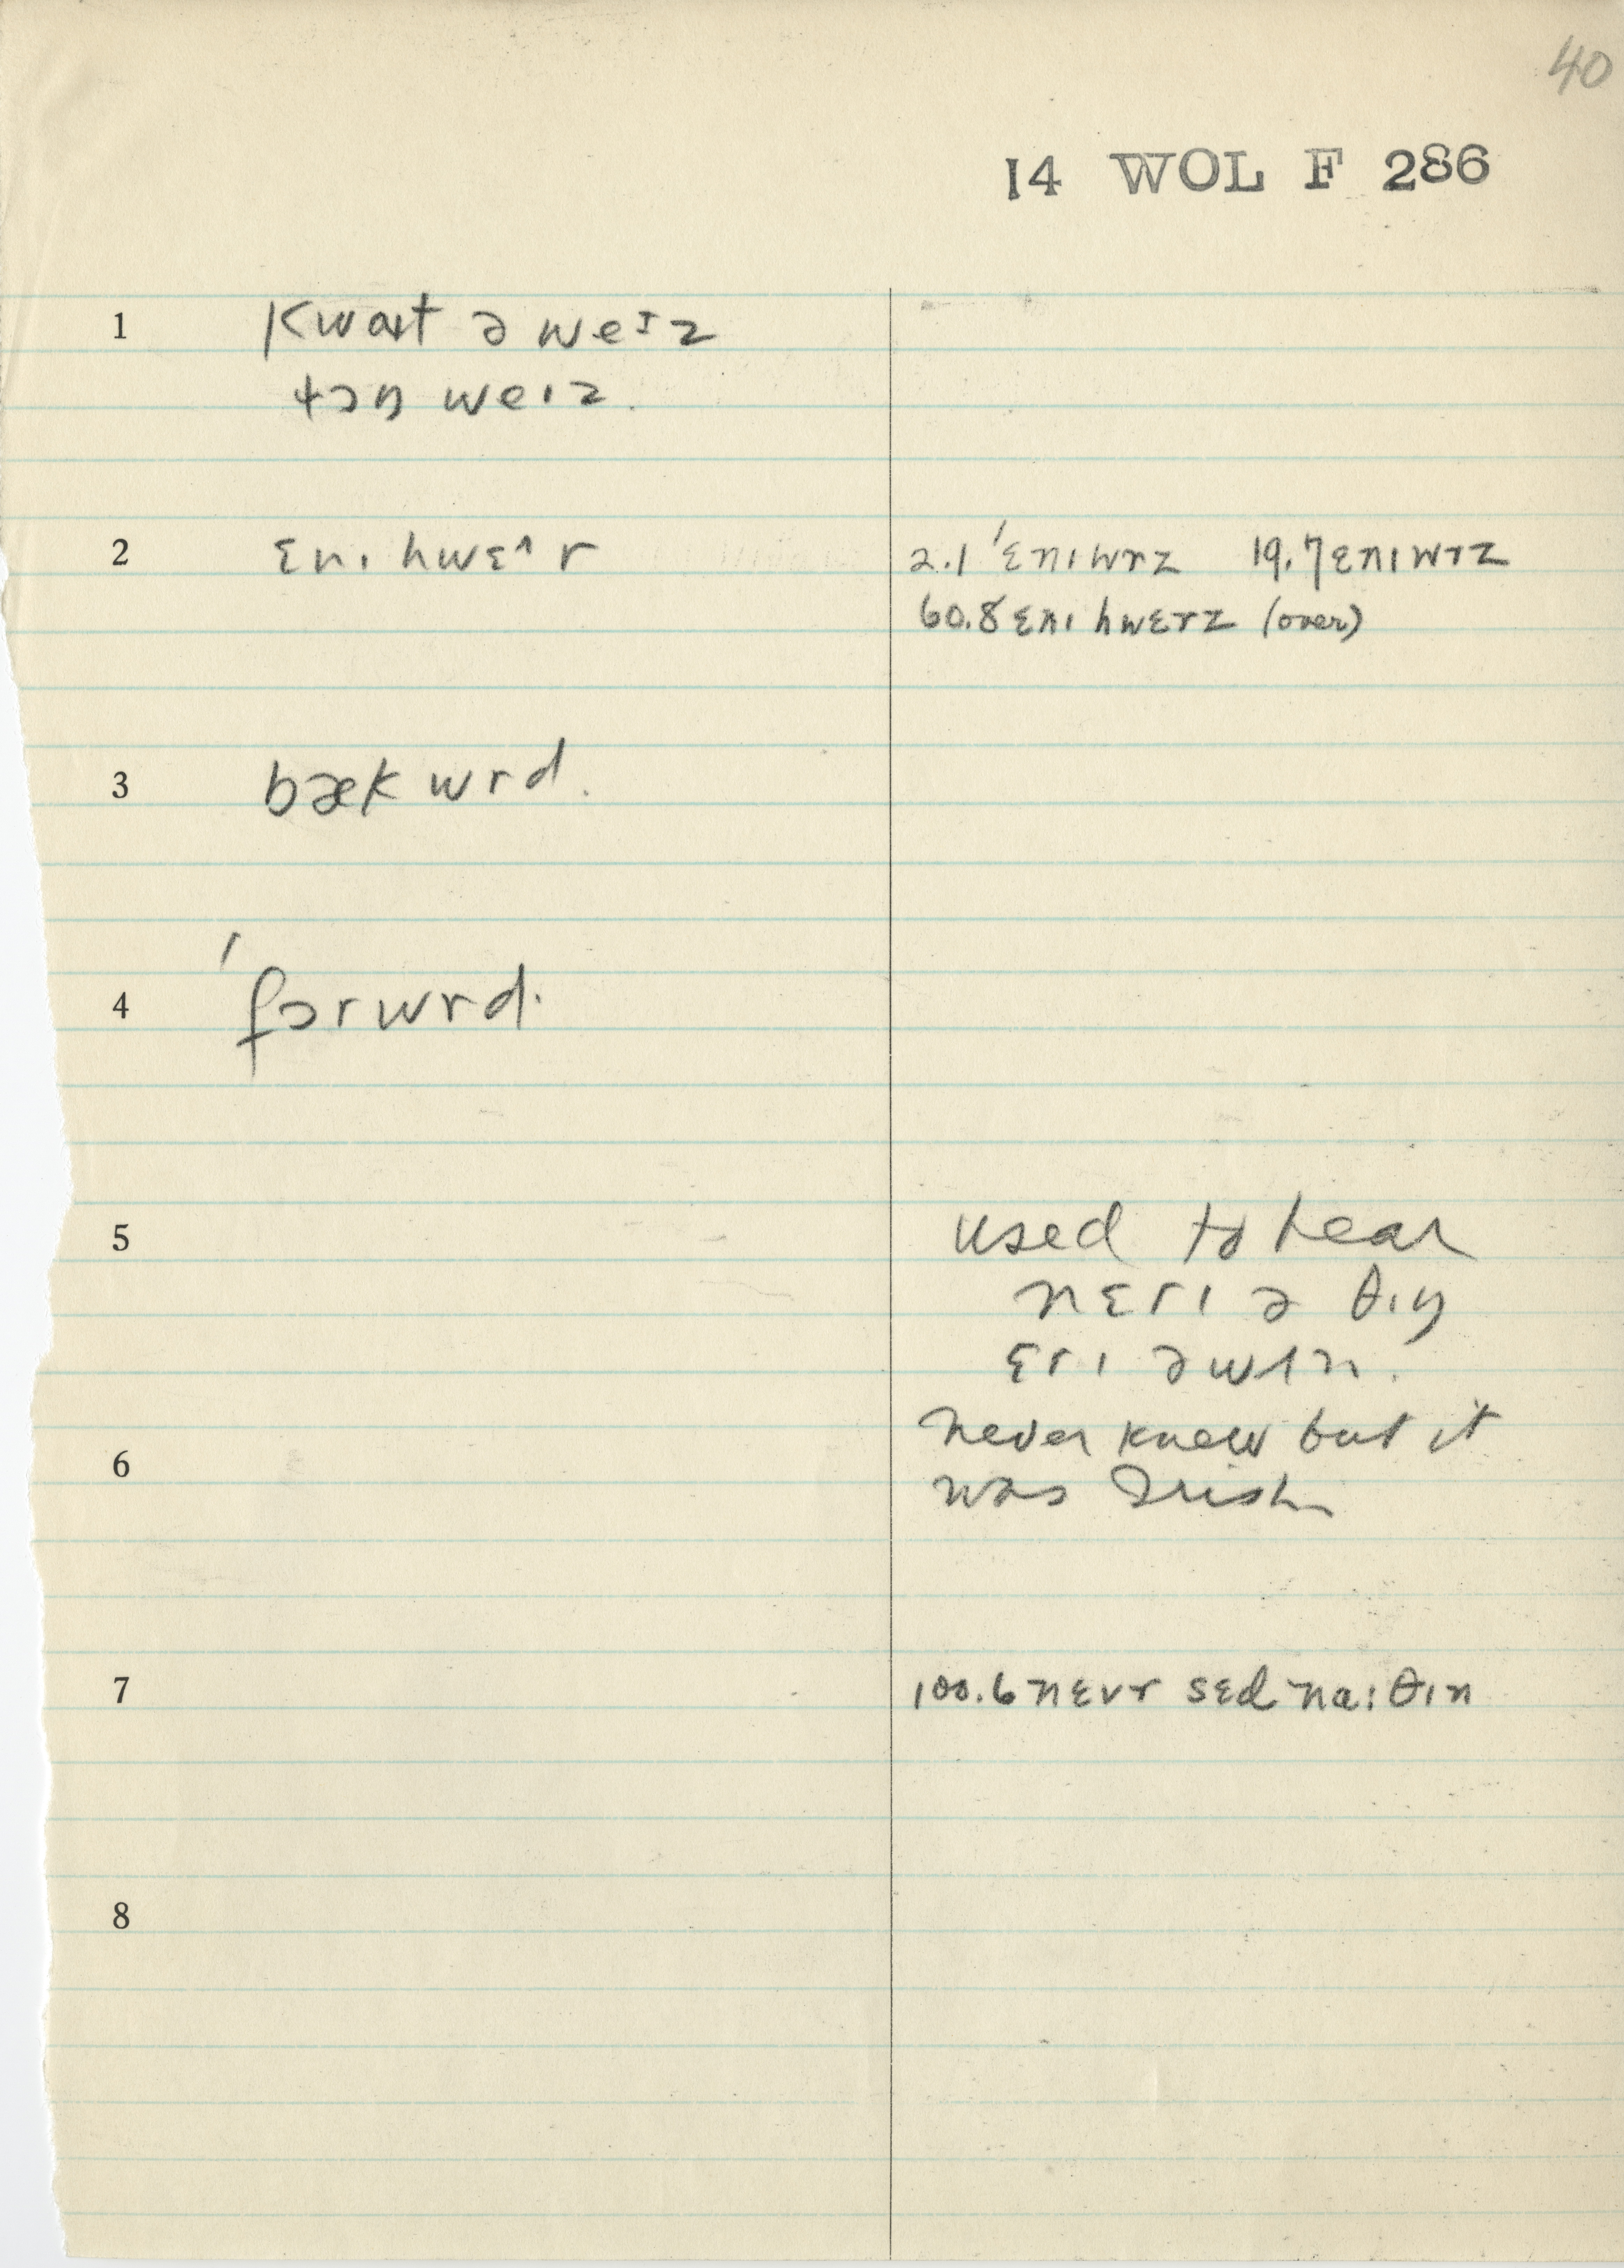 40
14 WOL F 286
1 kwaɪt ə weᴵz
ɫɔŋ weɪz.
2 ɛnɪ hwɛ^r 2.1 ˈɛnɪwrz 19.7 ɛnɪwrz
60.8 ɛnɪ hwɛrz (over)
3 bæk wrd.
4 ˈfɔrwrd.
5 used to hear
nɛrɪ ə θɪŋ
ɛrɪ ə wʌn.
never knew but it
6 was Irish
7 100.6 nɛvr sɛd naɪθɪn
8